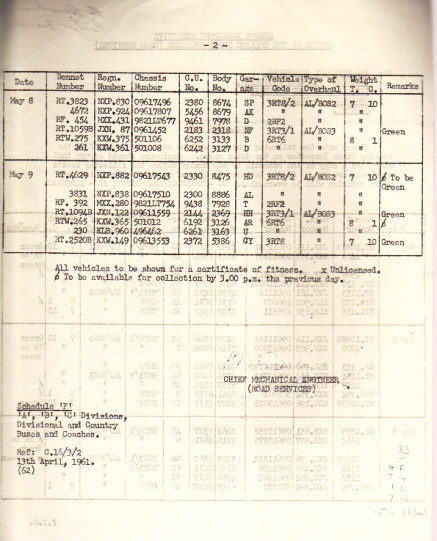 - 2 -
Date Bonnet Number Regn. Number Chassis Number C.U. No. Body No. Gar- age Vehicle Code Type of Overhaul Weight T. C. Remarks
May 8 RT.3823 NXP.830 09617496 2380 8674 SP 3RT8/2 AL/BOS2 7 10
4672 NXP.924 09617807 5456 8679 AK " " "
RF. 454 MXX.431 9821LT677 9461 7978 D 2RF2 "
RT.1059B JXN. 87 0961452 2183 2318 NF 3RT3/1 AL/BOS3 Green
RTW.275 KXW.375 501106 6252 3133 B 6RT6 " 8 1
261 KXW.361 501008 6242 3127 D " " "
May 9 RT.4629 NXP.882 09617543 2330 8475 HD 3RT8/2 AL/BOS2 7 10 ɸ To be Green
3831 NXP.838 09617510 2300 8886 AL " " "
RF. 392 MXX.280 9821LT754 9438 7928 T 2RF2 "
RT.1094B JXN.122 09611559 2144 2369 HH 3RT3/1 AL/BOS3 Green
RTW.265 KXW.365 501012 6192 3126 AR 6RT6 " 8 1 ɸ
230 KLB.960 496462 6261 3163 U " " "
RT.2520B KXW.149 09613553 2372 5386 GY 3RT8 " 7 10 Green
All vehicles to be shown for a certificate of fitness. x Unlicensed.
ɸ To be available for collection by 3.00 p.m. the previous day.
CHIEF MECHANICAL ENGINEER
(ROAD SERVICES)
Schedule 'F'
'A', 'B', 'C' Divisions,
Divisional and Country
Buses and Coaches.
Ref: C.16/3/2
13th April, 1961.
(62)
33